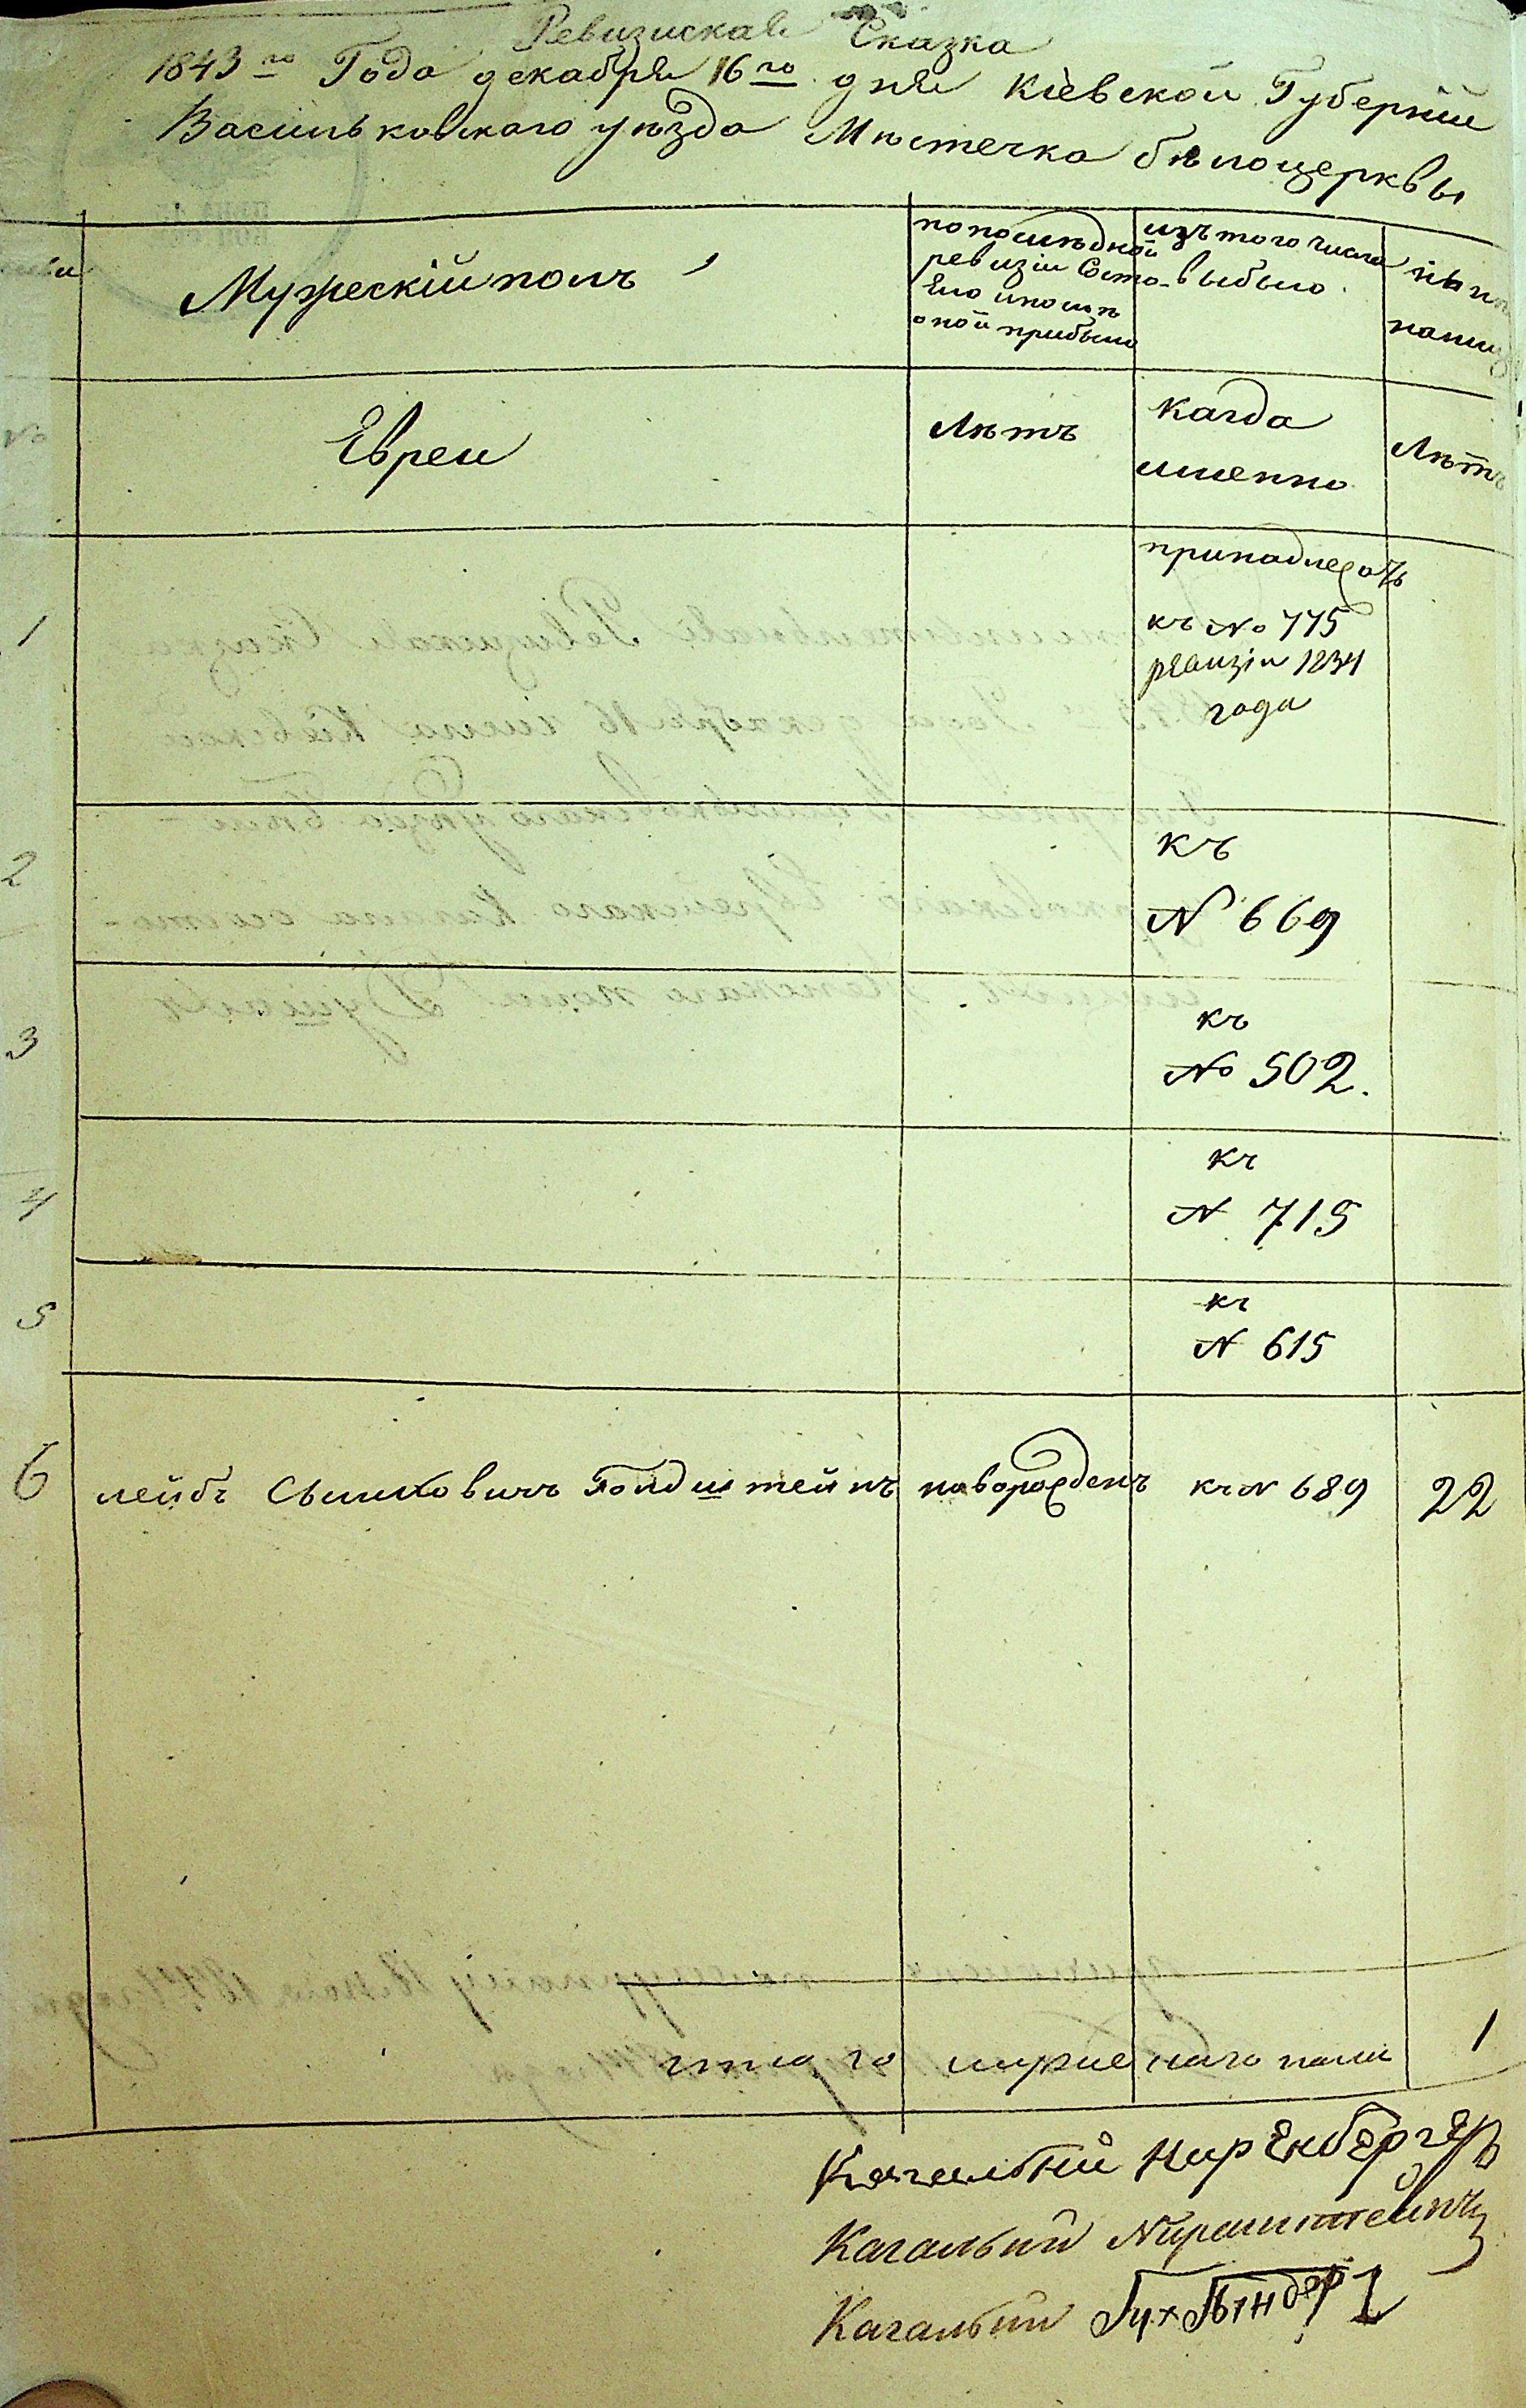 Ревизская Сказка
1843го Года декабря 16го дня Кіевской Губерніи
Васильковскаго уѣзда Мѣстечка бѣлоцерквы
Мужескій полъ
по послѣдной
ревизіи Состо-
яло и послѣ
оной прибыло
изъ того числа
выбыло
Евреи
Лѣтъ
когда
именно
Лѣтъ
1
принадлежатъ
къ № 775
ревизіи 1834
года
2
къ
№ 669
3
къ
№ 502.
4
къ
№ 715
5
къ
№ 615
6 лейбъ Сымховичъ Голдштейнъ новорожденъ къ № 689 22
итого мужескаго пола 1
Кагальный
Кагальный
Кагальный